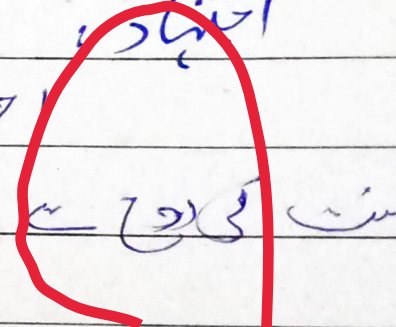 اجتہاد
سنت کی روح سے